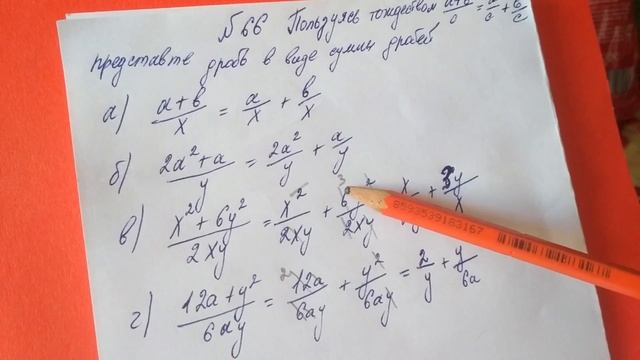 №66 Пользуясь тождеством a+b/c = a/c + b/c
представте дробь в виде суммы дробей
а) a+b/x = a/x + b/x
б) 2a²+a/y = 2a²/y + a/y
в) x²+6y²/2xy = x²/2xy + 6y²/2xy x/y + 3y/x
г) 12a+y²/6ay = 12a/6ay + y²/6ay = 2/y + y/6a
6593539163167